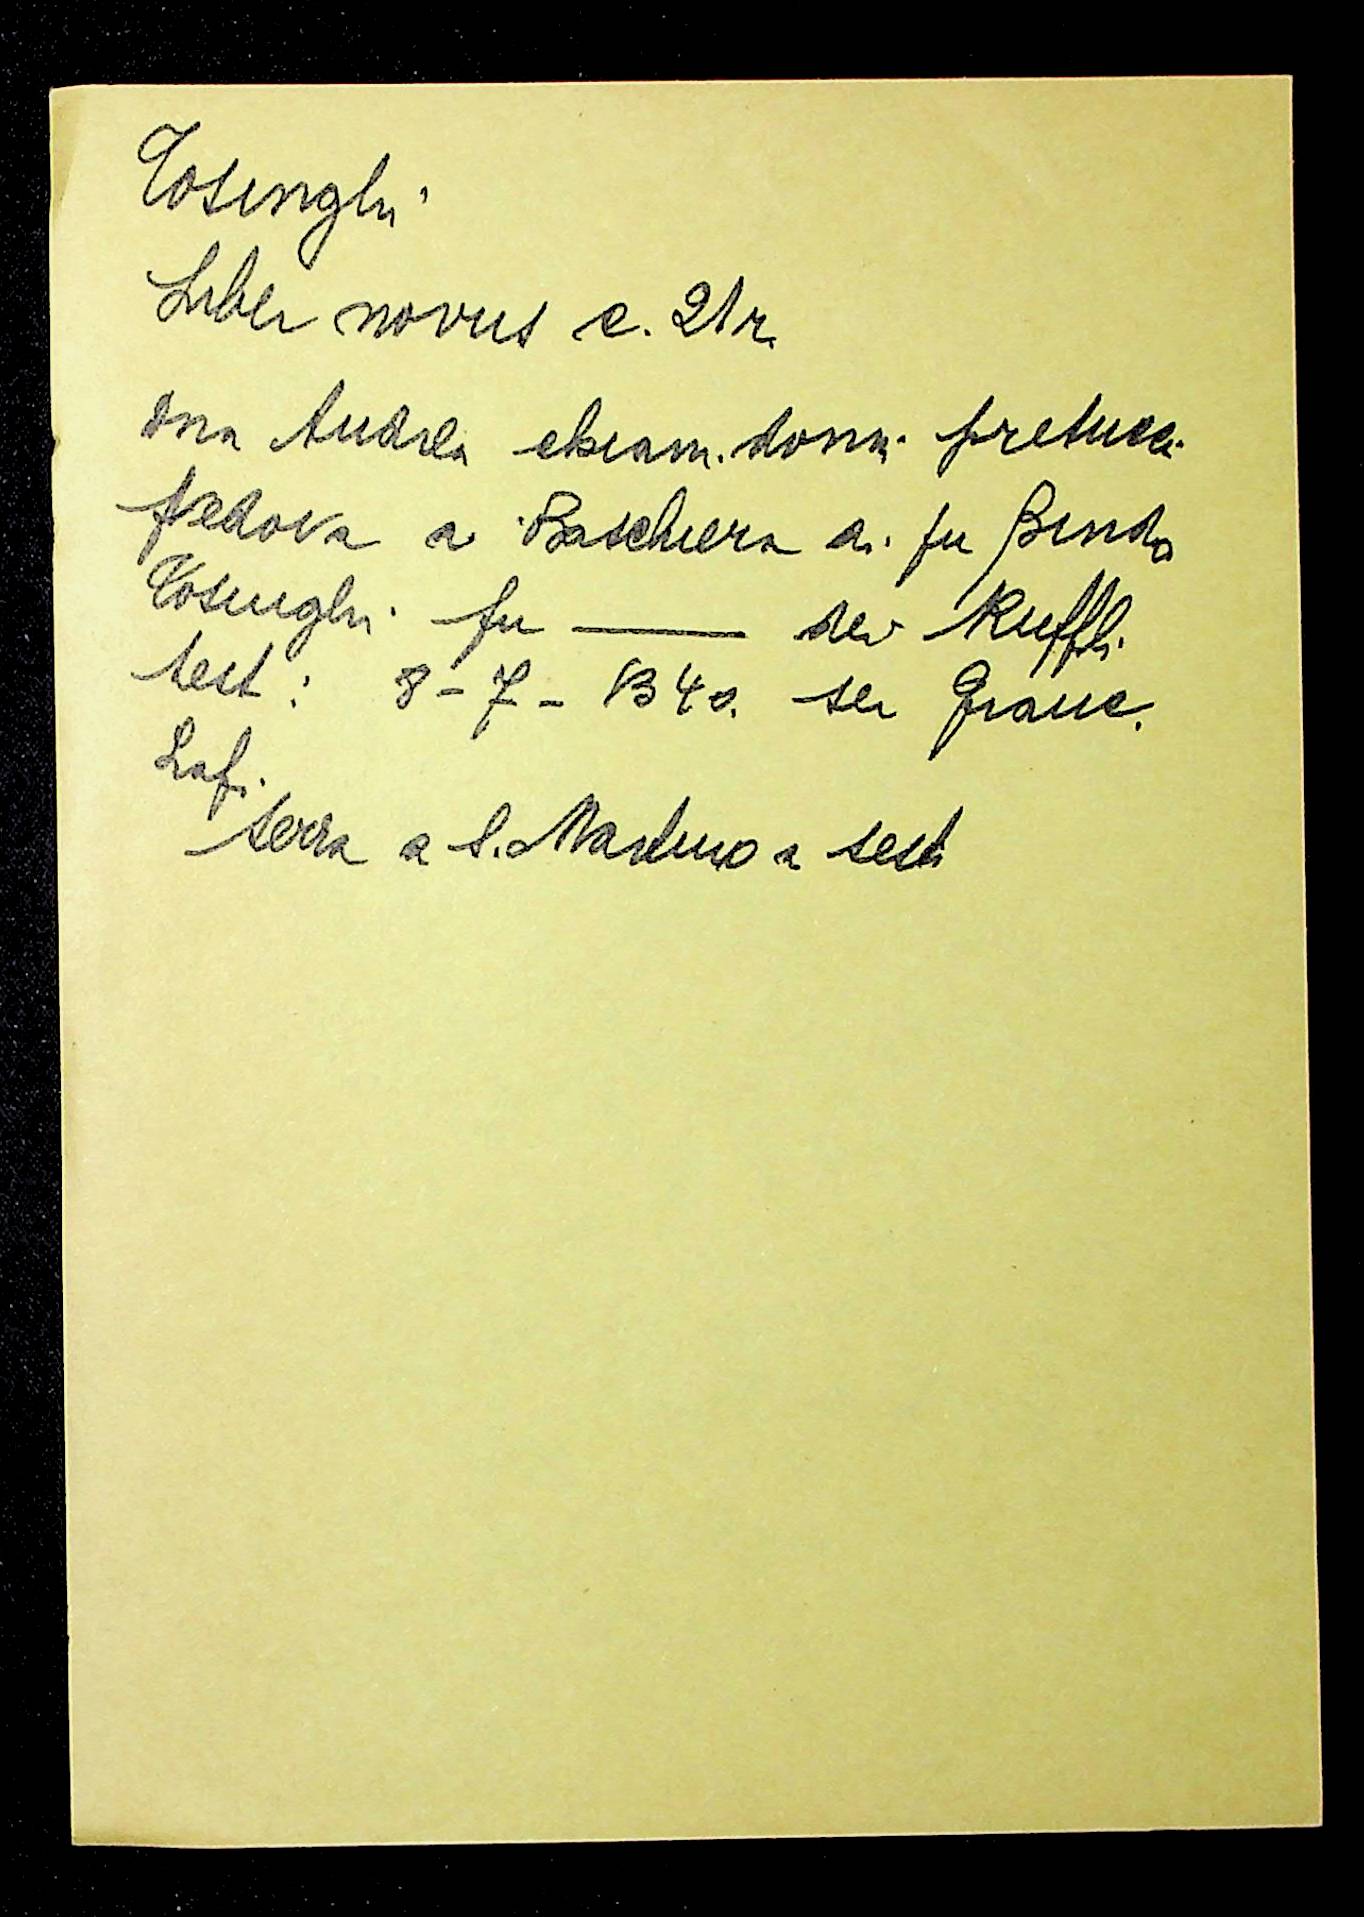 Tosinghi
Liber novus c. 21r.
dna Andrea chiam. donna pretucci
vedova a Baschiera di fu Bindo
Tosinghi fu — dei Ruffli.
test: 8-7-1340. ser Franc.
Lapi.
terra a S. Martino a Sesti